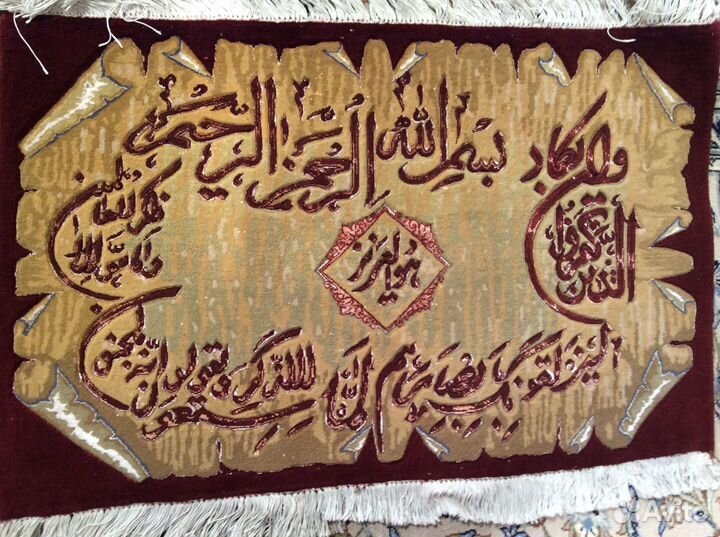 بسم الله الرحمن الرحيم
وان يكاد
الذين كفروا
ليزلقونك بابصارهم لما سمعوا الذكر و يقولون انه لمجنون
وما هو الا
ذكر للعالمين
هو العزيز
Avito